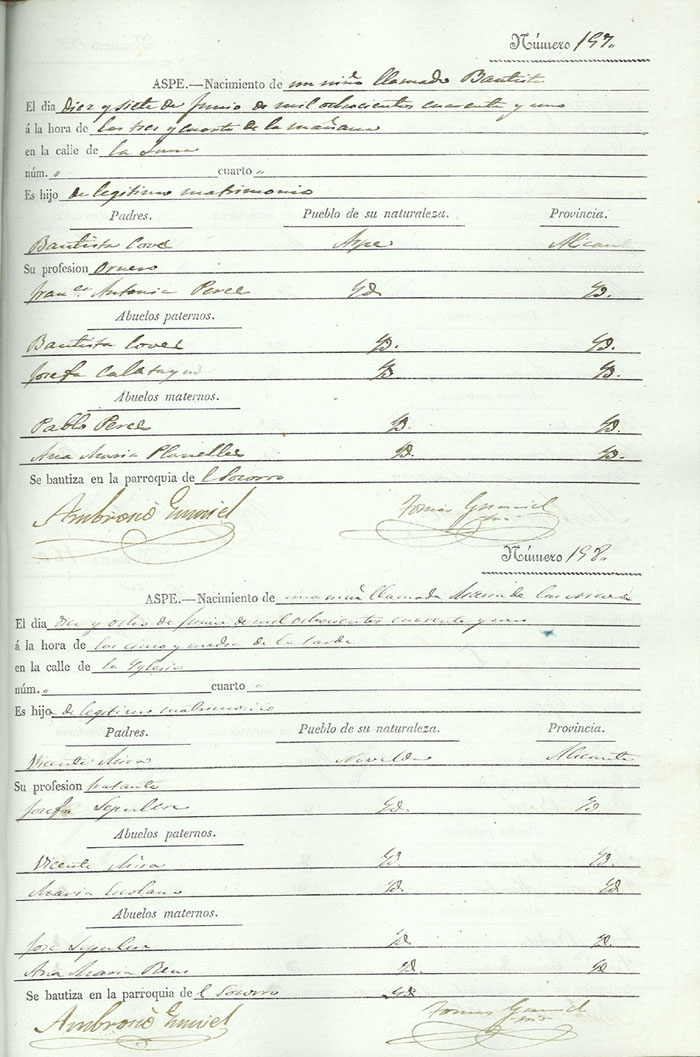 Número 197.
ASPE.—Nacimiento de un niño llamado Bautista
El dia diez y siete de Junio de mil ochocientos cuarenta y uno
á la hora de las tres y cuarto de la mañana
en la calle de la
núm. „ cuarto „
Es hijo de legitimo matrimonio
Padres. Pueblo de su naturaleza. Provincia.
Bautista Aspe Alicante
Su profesion
Franca. Antonia Perez Yd. Yd.
Abuelos paternos.
Bautista Yd. Yd.
Josefa Calatayud Yd. Yd.
Abuelos maternos.
Pablo Perez Yd. Yd.
Ana Maria Planelles Yd. Yd.
Se bautiza en la parroquia de l Socorro
Ambrosio Tomas
Número 198.
ASPE.—Nacimiento de una niña llamada Maria de las
El dia diez y ocho de Junio de mil ochocientos cuarenta y uno
á la hora de las cinco y media de la tarde
en la calle de la Yglesia
núm. „ cuarto „
Es hijo de legitimo matrimonio
Padres. Pueblo de su naturaleza. Provincia.
Vicente Mira Novelda Alicante
Su profesion tratante
Josefa Sepulcre Yd. Yd.
Abuelos paternos.
Vicente Mira Yd. Yd.
Maria Yd. Yd.
Abuelos maternos.
José Sepulcre Yd. Yd.
Ana Maria Yd. Yd.
Se bautiza en la parroquia de l Socorro Yd
Ambrosio Tomas